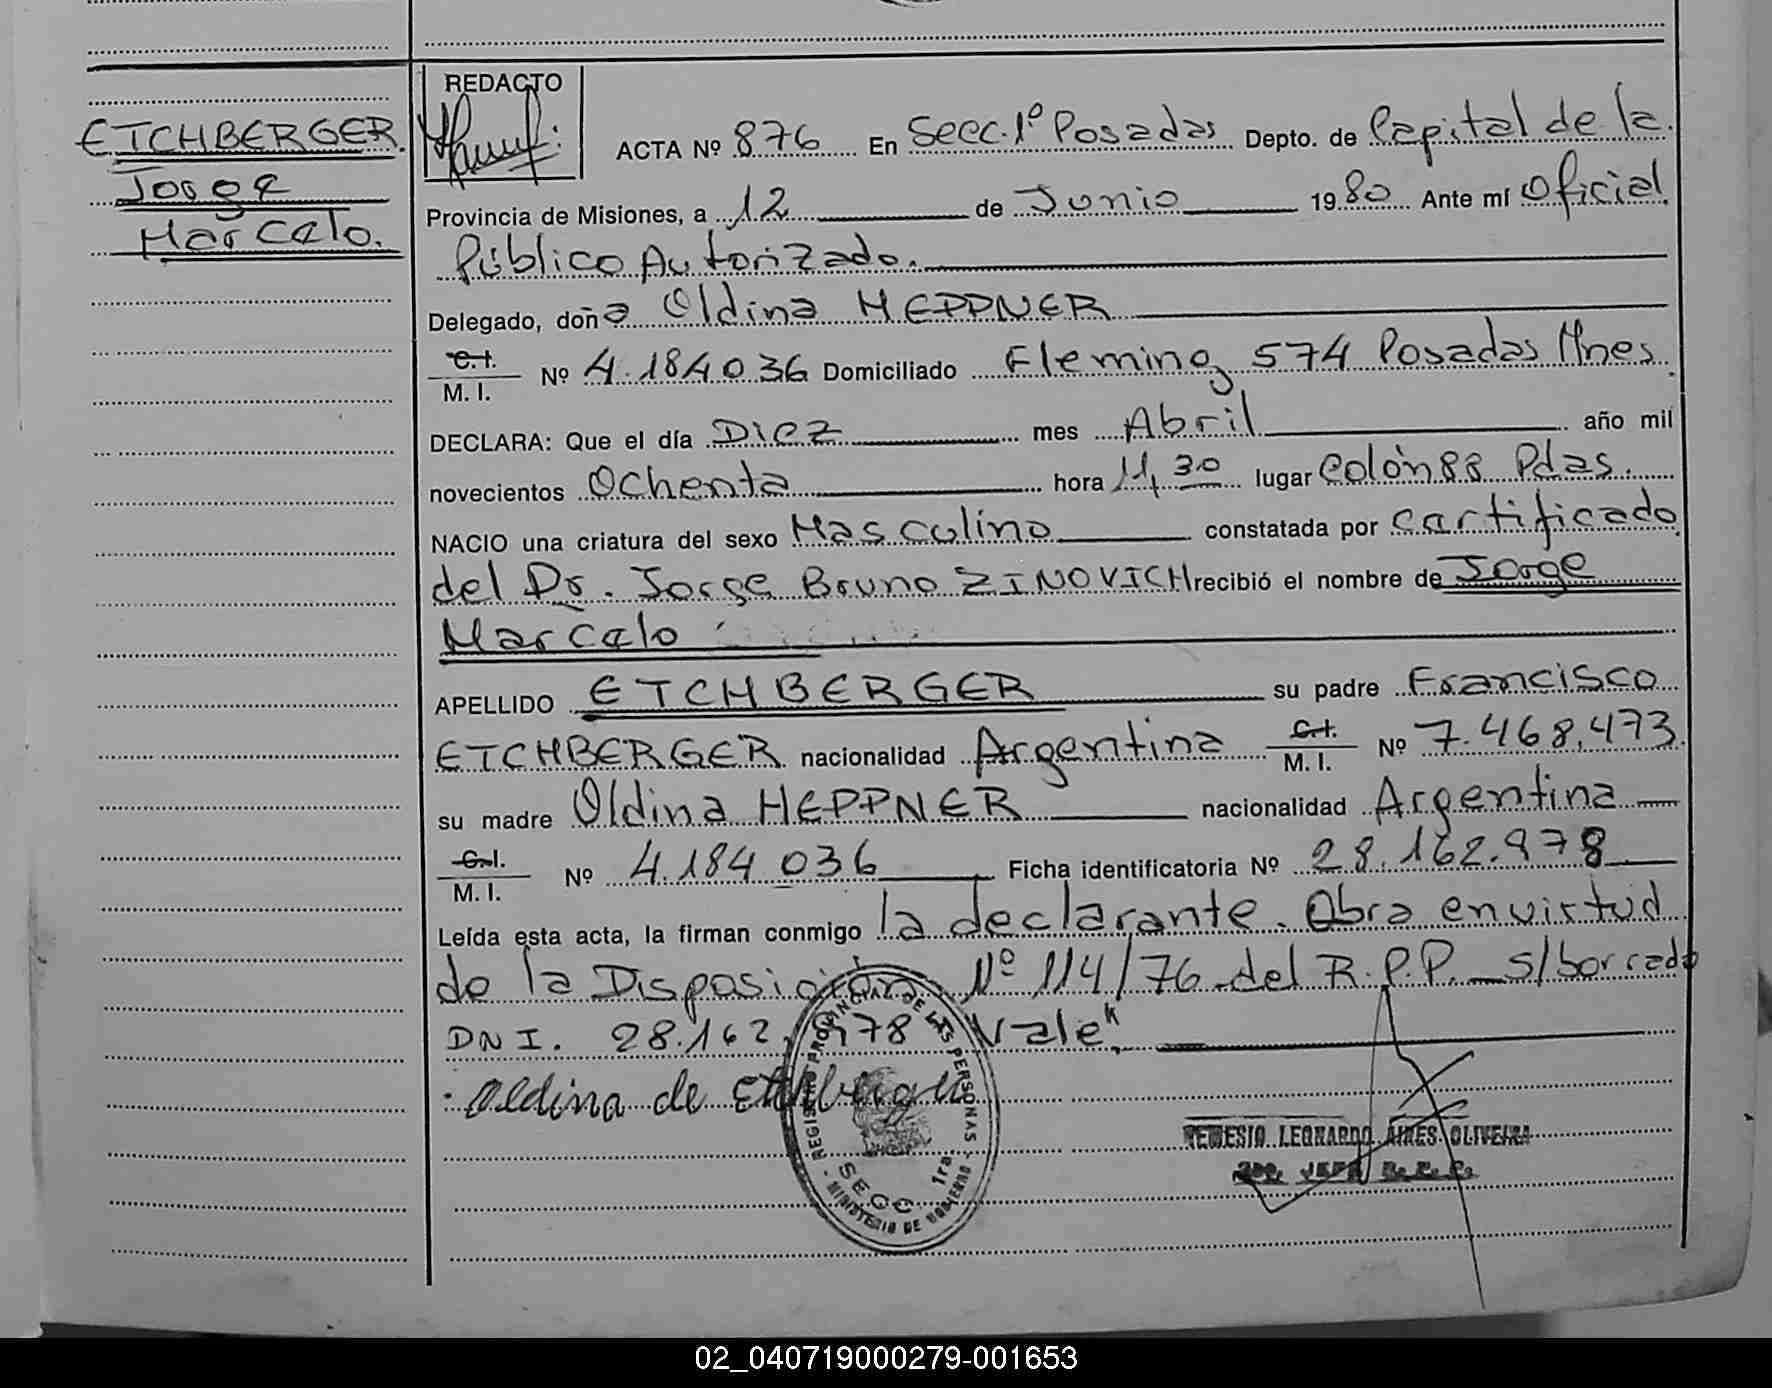 ETCHBERGER.
Jorge
Marcelo.
REDACTO
ACTA Nº 876 En Secc. 1º Posadas Depto. de Capital de la
Provincia de Misiones, a 12 de Junio 1980 Ante mí Oficial
Público Autorizado.
Delegado, doña Oldina HEPPNER
C.I.
M. I. Nº 4.184.036 Domiciliado Fleming 574 Posadas Mnes.
DECLARA: Que el día Diez mes Abril año mil
novecientos Ochenta hora 11,30 lugar Colón 88 Pdas.
NACIO una criatura del sexo Masculino constatada por certificado
del Dr. Jorge Bruno ZINOVICH recibió el nombre de Jorge
Marcelo
APELLIDO ETCHBERGER su padre Francisco
ETCHBERGER nacionalidad Argentina C.I.
M. I. Nº 7.468.473
su madre Oldina HEPPNER nacionalidad Argentina
C.I.
M. I. Nº 4.184.036 Ficha identificatoria Nº 28.162.978
Leída esta acta, la firman conmigo la declarante. Obra en virtud
de la Disposición Nº 114/76 del R.P.P. s/borrado
DNI. 28.162.978 Vale.
Oldina de Etchberger
REGISTRO PROVINCIAL DE LAS PERSONAS
SECC. 1ra
MINISTERIO DE GOBIERNO
NEMESIO LEONARDO AIRES OLIVEIRA
02_040719000279-001653